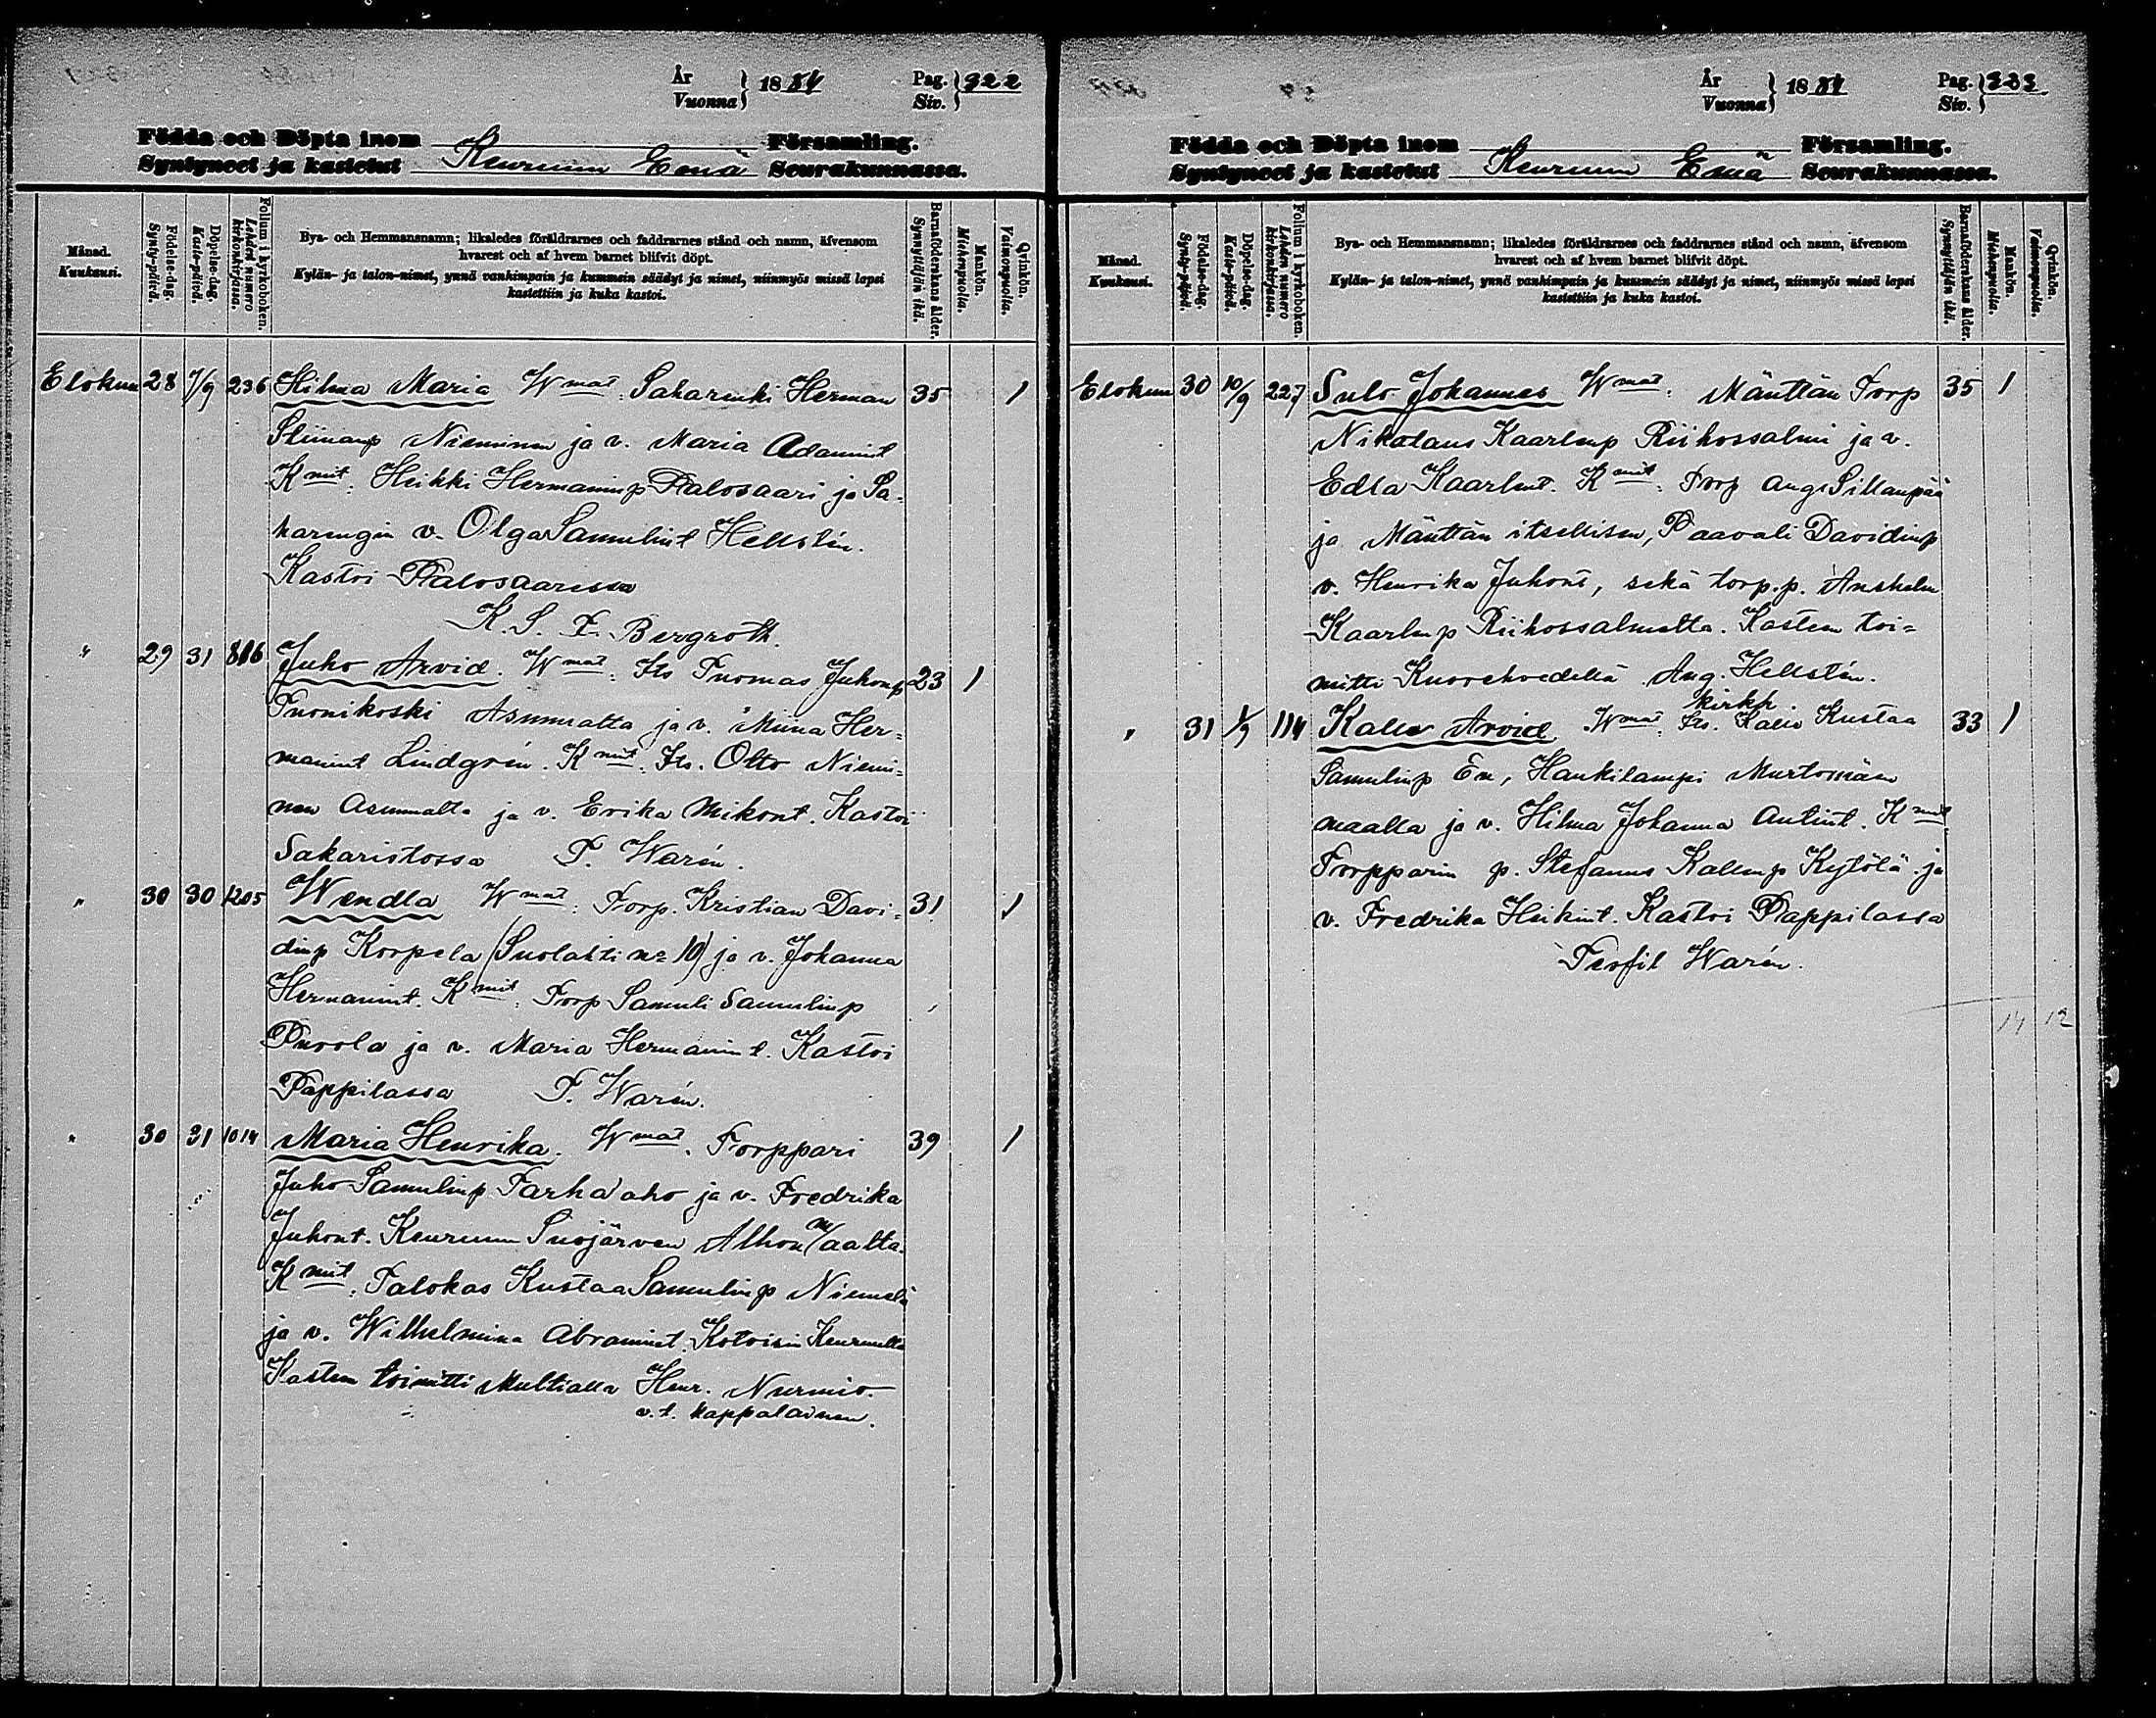 År Vuonna } 1884 Pag. Siv. } 322
Födda och Döpta inom Församling.
Syntyneet ja kastetut Keuruun Emä Seurakunnassa.
Månad. Kuukausi.
Födelse-dag. Synty-päivä.
Döpelse-dag. Kaste-päivä.
Folium i kyrkoboken. Lehden numero kirkonkirjassa.
Bya- och Hemmansnamn; likaledes föräldrarnes och faddrarnes stånd och namn, äfvensom
hvarest och af hvem barnet blifvit döpt.
Kylän- ja talon-nimet, ynnä vanhimpain ja kummein säädyt ja nimet, niinmyös missä lapsi
kastettiin ja kuka kastoi.
Barnaföderskans ålder. Synnyttäjän ikä.
Mankön. Miehenpuolia.
Qvinkön. Vaimonpuolia.
Elokuu 28 7/9 236 Hilma Maria Wmat: Saharinki Herman 35 1
Nieminen ja v. Maria Adamint
Kmit: Heikki Hermaninp Palosaari ja Sa-
haringin v. Olga Samulint Hellstén.
Kastoi Palosaaressa
K. S. F. Bergroth.
" 29 31 886 Juho Arvid. Wmat: Its Tuomas Juhonp 23 1
Tuonikoski Asunnalta ja v. Miina Her=
manint Lindgrén. Kmit: Its. Otto Niemi=
nen Asunnalta ja v. Erika Mikont. Kastoi
Sakaristossa T. Warén.
" 30 30 1205 Wendla Wmat: Torp. Kristian Davi= 31 1
dinp Korpela (Suolahti no 10) ja v. Johanna
Hermanint. Kmit: Torp Samuli Samulinp
Purola ja v. Maria Hermanint. Kastoi
Pappilassa T. Warén.
" 30 31 1014 Maria Henrika. Wmat. Torppari 39 1
Juho Samulinp Tarhaaho ja v. Fredrika
Juhont. Keuruun Suojärven Alhon m/aalta.
Kmit: Talokas Kustaa Samulinp Niemelä
ja v. Wilhelmina Abramint. Kotoisin Keuruulla
Kasteen toimitti Multialla Henr. Nurmio.
v.t. kappalainen.
År Vuonna } 1884 Pag. Siv. } 323
Födda och Döpta inom Församling.
Syntyneet ja kastetut Keuruun Emä Seurakunnassa.
Månad. Kuukausi.
Födelse-dag. Synty-päivä.
Döpelse-dag. Kaste-päivä.
Folium i kyrkoboken. Lehden numero kirkonkirjassa.
Bya- och Hemmansnamn; likaledes föräldrarnes och faddrarnes stånd och namn, äfvensom
hvarest och af hvem barnet blifvit döpt.
Kylän- ja talon-nimet, ynnä vanhimpain ja kummein säädyt ja nimet, niinmyös missä lapsi
kastettiin ja kuka kastoi.
Barnaföderskans ålder. Synnyttäjän ikä.
Mankön. Miehenpuolia.
Qvinkön. Vaimonpuolia.
Elokuu 30 10/9 227 Sulo Johannes Wmat: Mänttän Torp 35 1
Nikolaus Kaarlenp Riihossalmi ja v.
Edla Kaarlent. Kmit: Torp Aug. Sillanpää
ja Mänttän itsellisen, Paavali Davidinp
v. Henrika Juhont, sekä torp.p. Anshelm
Kaarlenp Riihossalmelta. Kasteen toi=
mitti Kuorehvedellä Aug. Hellstén.
kirkh.
" 31 1/9 114 Kalle Arvid Wmat: Its. Kalle Kustaa 33 1
Samulinp En, Haukilampi Murtomäen
maalla ja v. Hilma Johanna Antint. Kmit
Torpparin p. Stefanus Kallenp Kytölä ja
v. Fredrika Heikint. Kastoi Pappilassa
Teofil Warén.
14 12